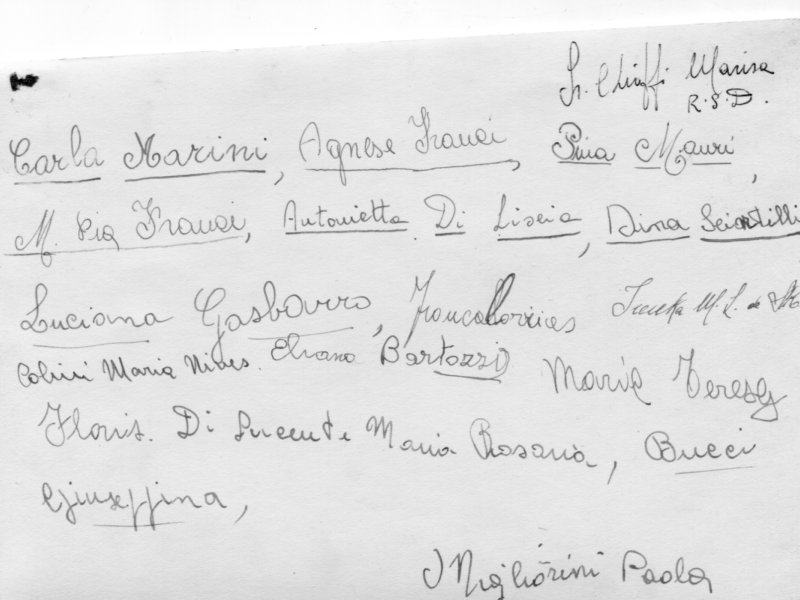 Sr. Chiaffi Marisa
R.S.D.
Carla Marini, Agnese Franci, Pina Mauri,
M. Pia Franci, Antonietta Di Liscia, Dina Sciartilli
Luciana Gasbarro, Franca M. L. de
Colini Maria Nives. Eliana Bartozzi Maria Teresa
Floris. Di Lucente Maria Rosaria, Bucci
Giuseppina,
Migliorini Paola